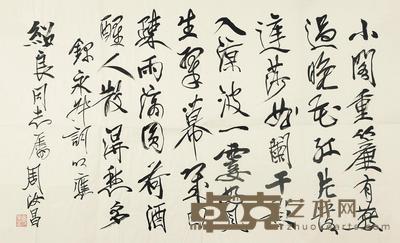 小閣重簾有燕
過晚花紅片落
庭莎曲闌干影
入涼波一霎好風
生翠幕幾回
疎雨滴圓荷酒
醒人散得愁多
錄永叔詞以應
紹良同志屬 周汝昌
卓克艺术网